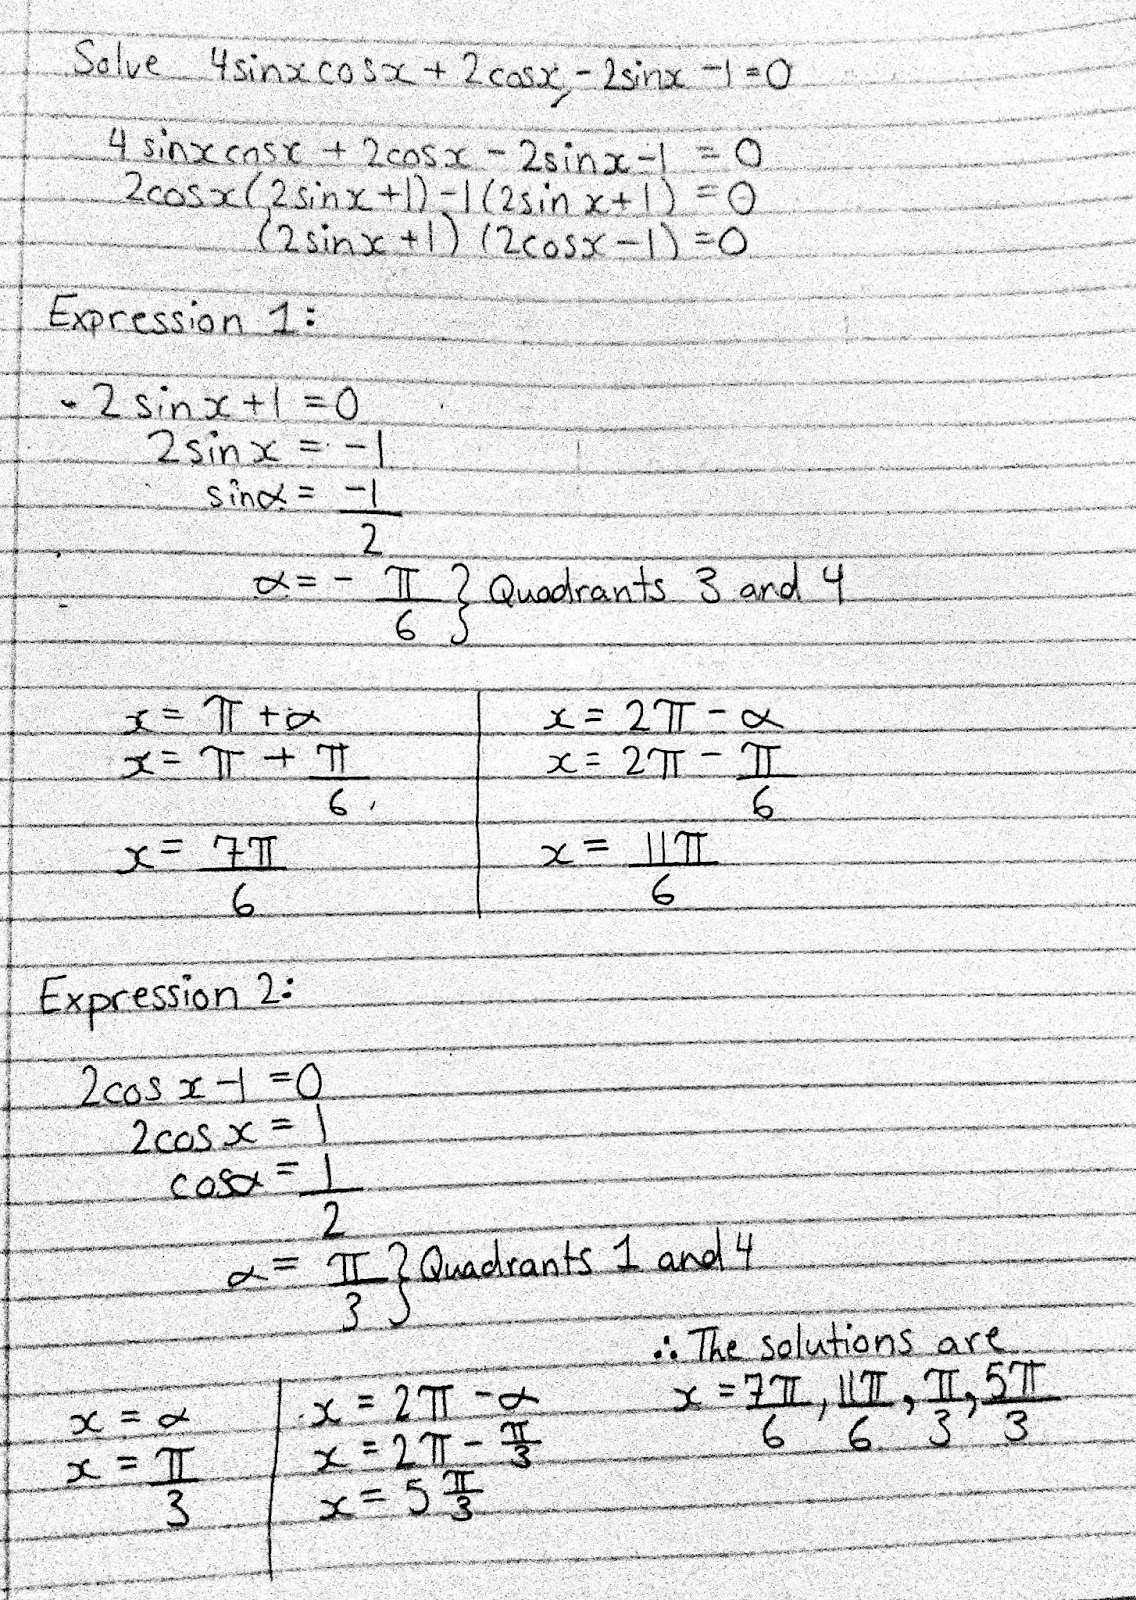 Solve 4sinxcosx + 2cosx - 2sinx - 1 = 0
4sinxcosx + 2cosx - 2sinx - 1 = 0
2cosx(2sinx+1) - 1(2sinx+1) = 0
(2sinx+1) (2cosx-1) = 0
Expression 1:
2sinx+1 = 0
2sinx = -1
sinα = -1/2
α = - π/6 } Quadrants 3 and 4
x = π + α
x = π + π/6
x = 7π/6
x = 2π - α
x = 2π - π/6
x = 11π/6
Expression 2:
2cosx-1 = 0
2cosx = 1
cosα = 1/2
α = π/3 } Quadrants 1 and 4
x = α
x = π/3
x = 2π - α
x = 2π - π/3
x = 5 π/3
∴ The solutions are
x = 7π/6, 11π/6, π/3, 5π/3